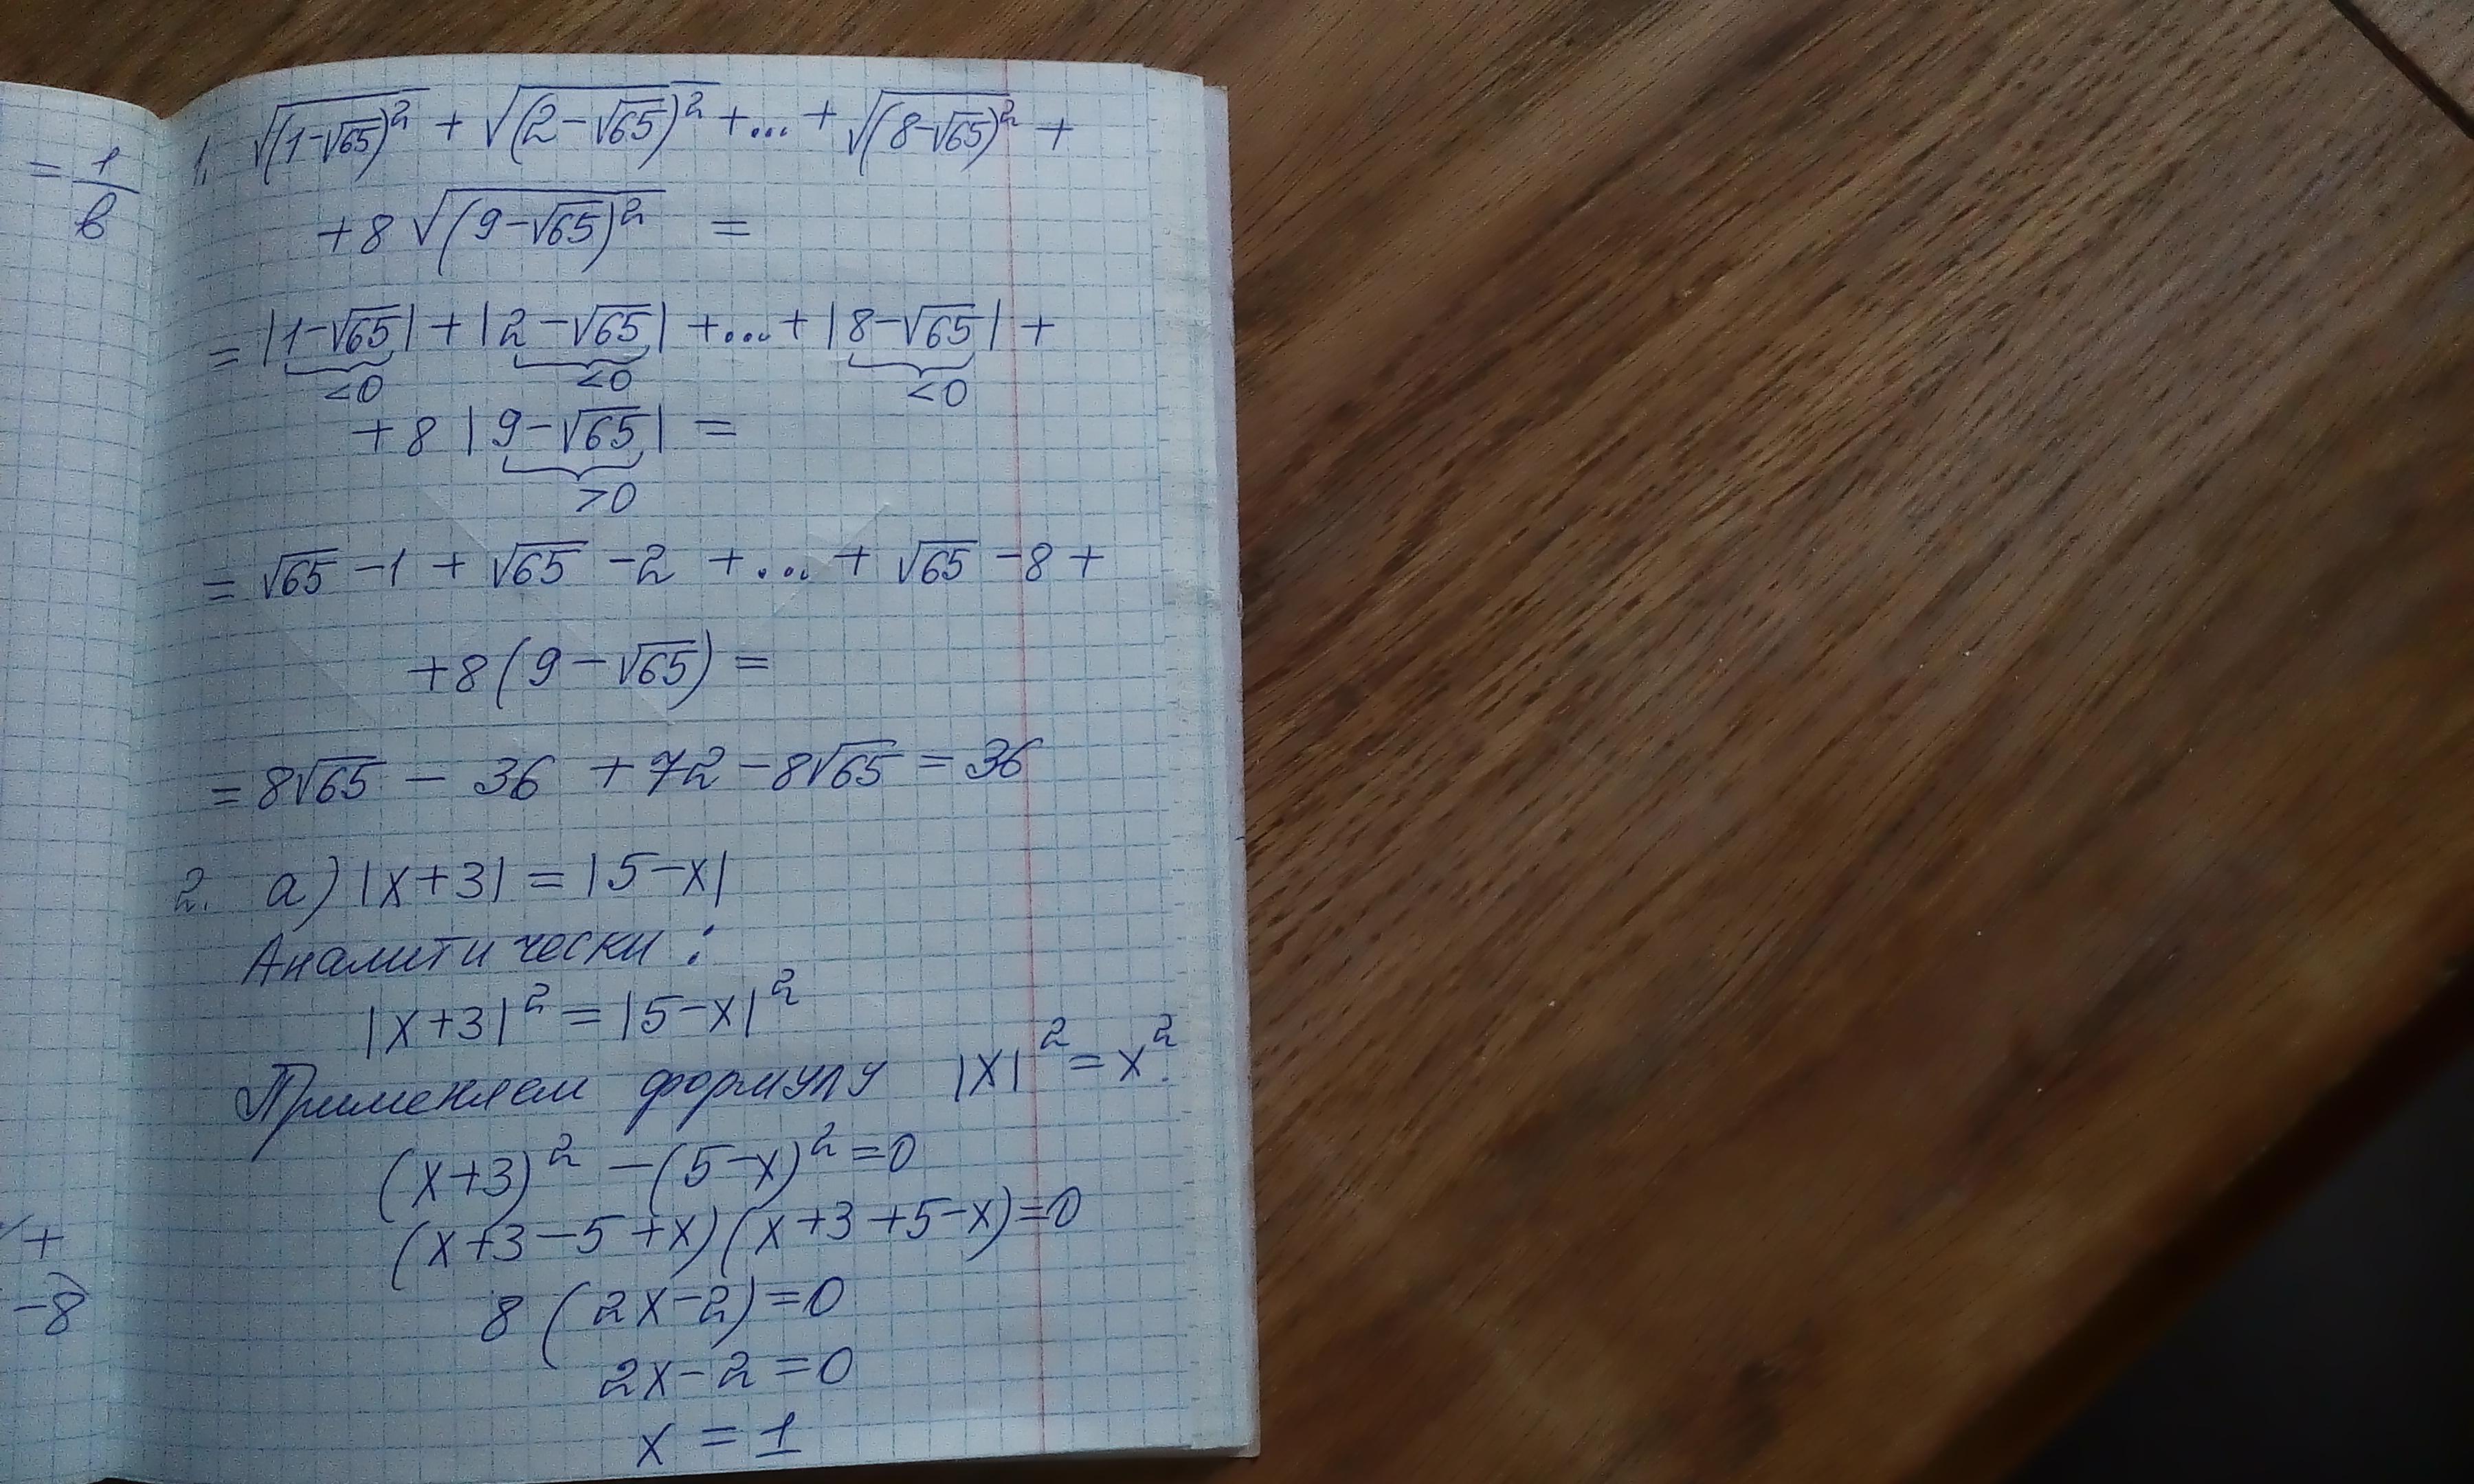 = 1/в
+
-8)
1. √(1-√65)² + √(2-√65)² +...+ √(8-√65)² +
+ 8 √(9-√65)² =
= |1-√65| + |2-√65| +...+ |8-√65| +
<0 <0 <0
+ 8 |9-√65| =
>0
= √65 -1 + √65 -2 +...+ √65 -8 +
+8(9-√65) =
= 8√65 - 36 + 72 - 8√65 = 36
2. а) |x+3| = |5-x|
Аналитически:
|x+3|² = |5-x|²
Применяем формулу |x|² = x².
(x+3)² - (5-x)² = 0
(x+3-5+x)(x+3+5-x)=0
8(2x-2)=0
2x-2=0
x = 1